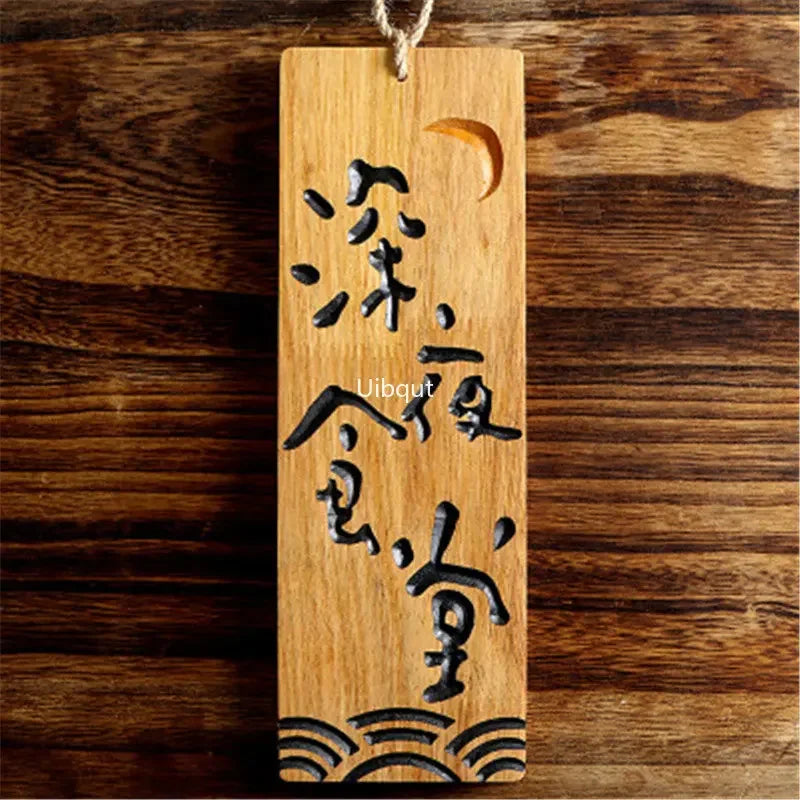 深夜
食堂
Uibqut